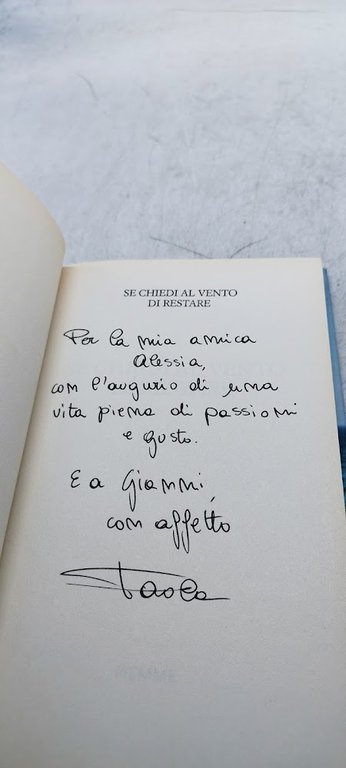 SE CHIEDI AL VENTO
DI RESTARE
Per la mia amica
Alessia,
con l'augurio di una
vita piena di passioni
e gusto.
E a Gianni,
con affetto
Paola
PIEMME